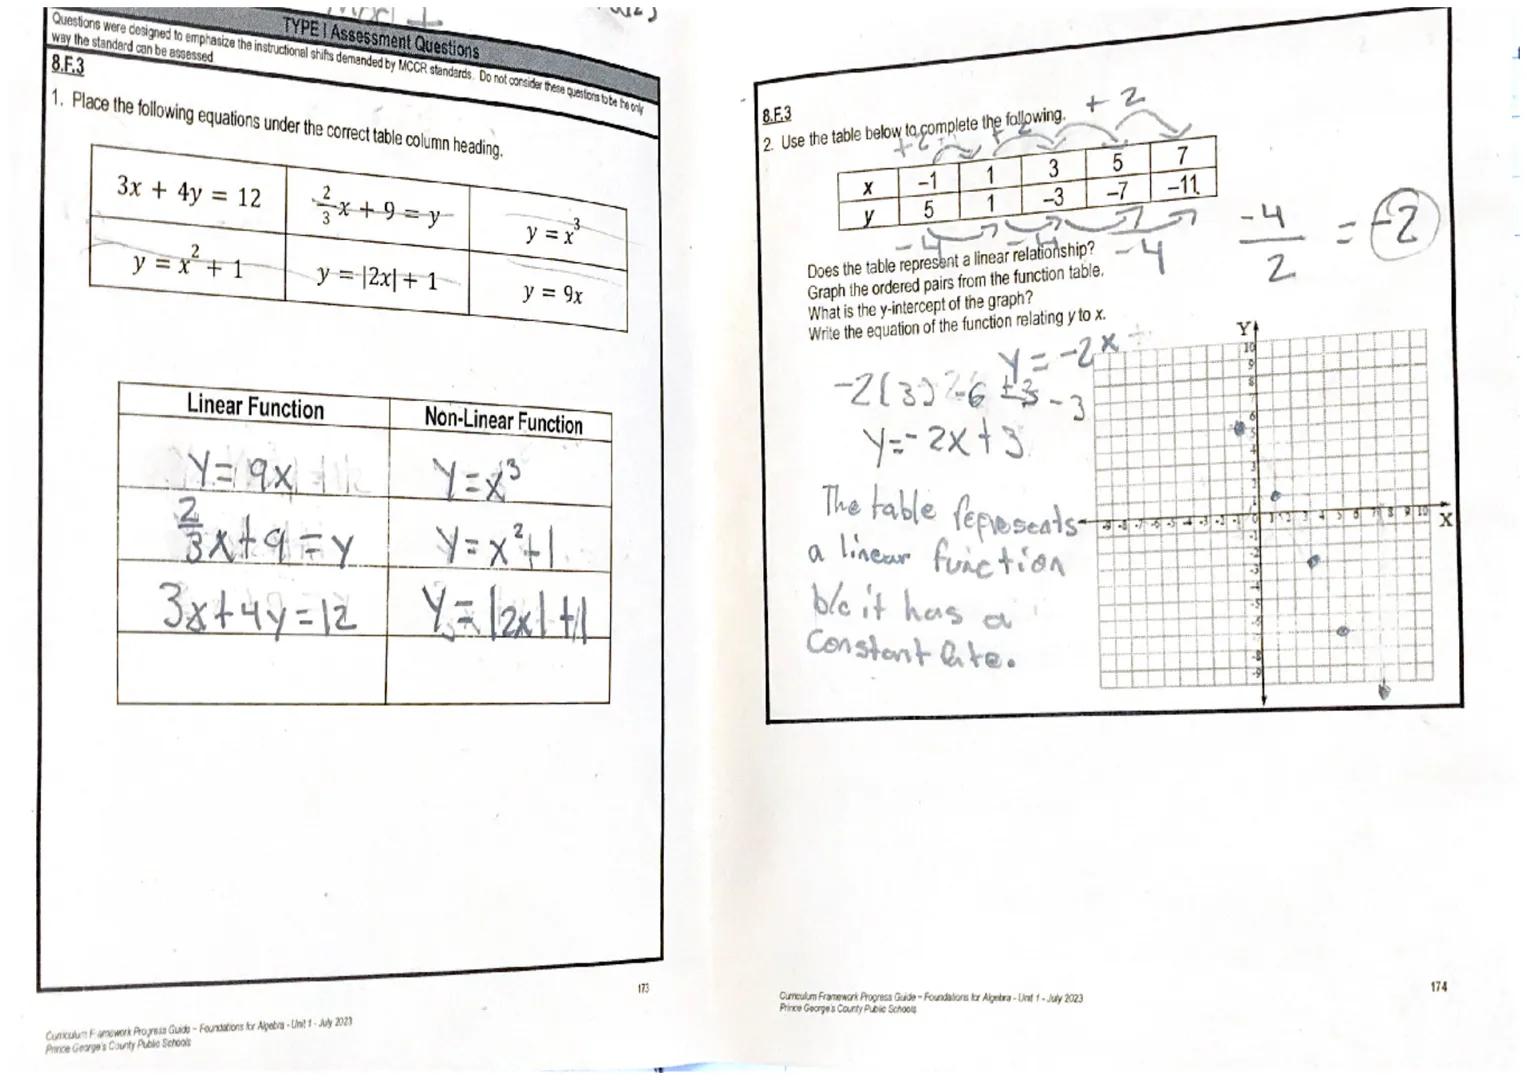 TYPE I Assessment Questions
Questions were designed to emphasize the instructional shifts demanded by MCCR standards. Do not consider these questions to be the only
way the standard can be assessed
8.F.3
1. Place the following equations under the correct table column heading.
3x + 4y = 12
2/3 x + 9 = y
y = x³
y = x² + 1
y = |2x| + 1
y = 9x
Linear Function
Non-Linear Function
y = 9x
y = x³
2/3 x + 9 = y
y = x² + 1
3x + 4y = 12
y = |2x| + 1
173
Curriculum Framework Progress Guide – Foundations for Algebra - Unit 1 - July 2023
Prince George's County Public Schools
8.F.3
+ 2
2. Use the table below to complete the following.
+2
+ 2
x -1 1 3 5 7
y 5 1 -3 -7 -11
-4
-4
-4
-4/2 = -2
Does the table represent a linear relationship?
Graph the ordered pairs from the function table.
What is the y-intercept of the graph?
Write the equation of the function relating y to x.
y = -2x +
-2(3) -6 +3 -3
y = -2x + 3
The table represents
a linear function
b/c it has a
constant rate.
Y
X
174
Curriculum Framework Progress Guide – Foundations for Algebra - Unit 1 - July 2023
Prince George's County Public Schools